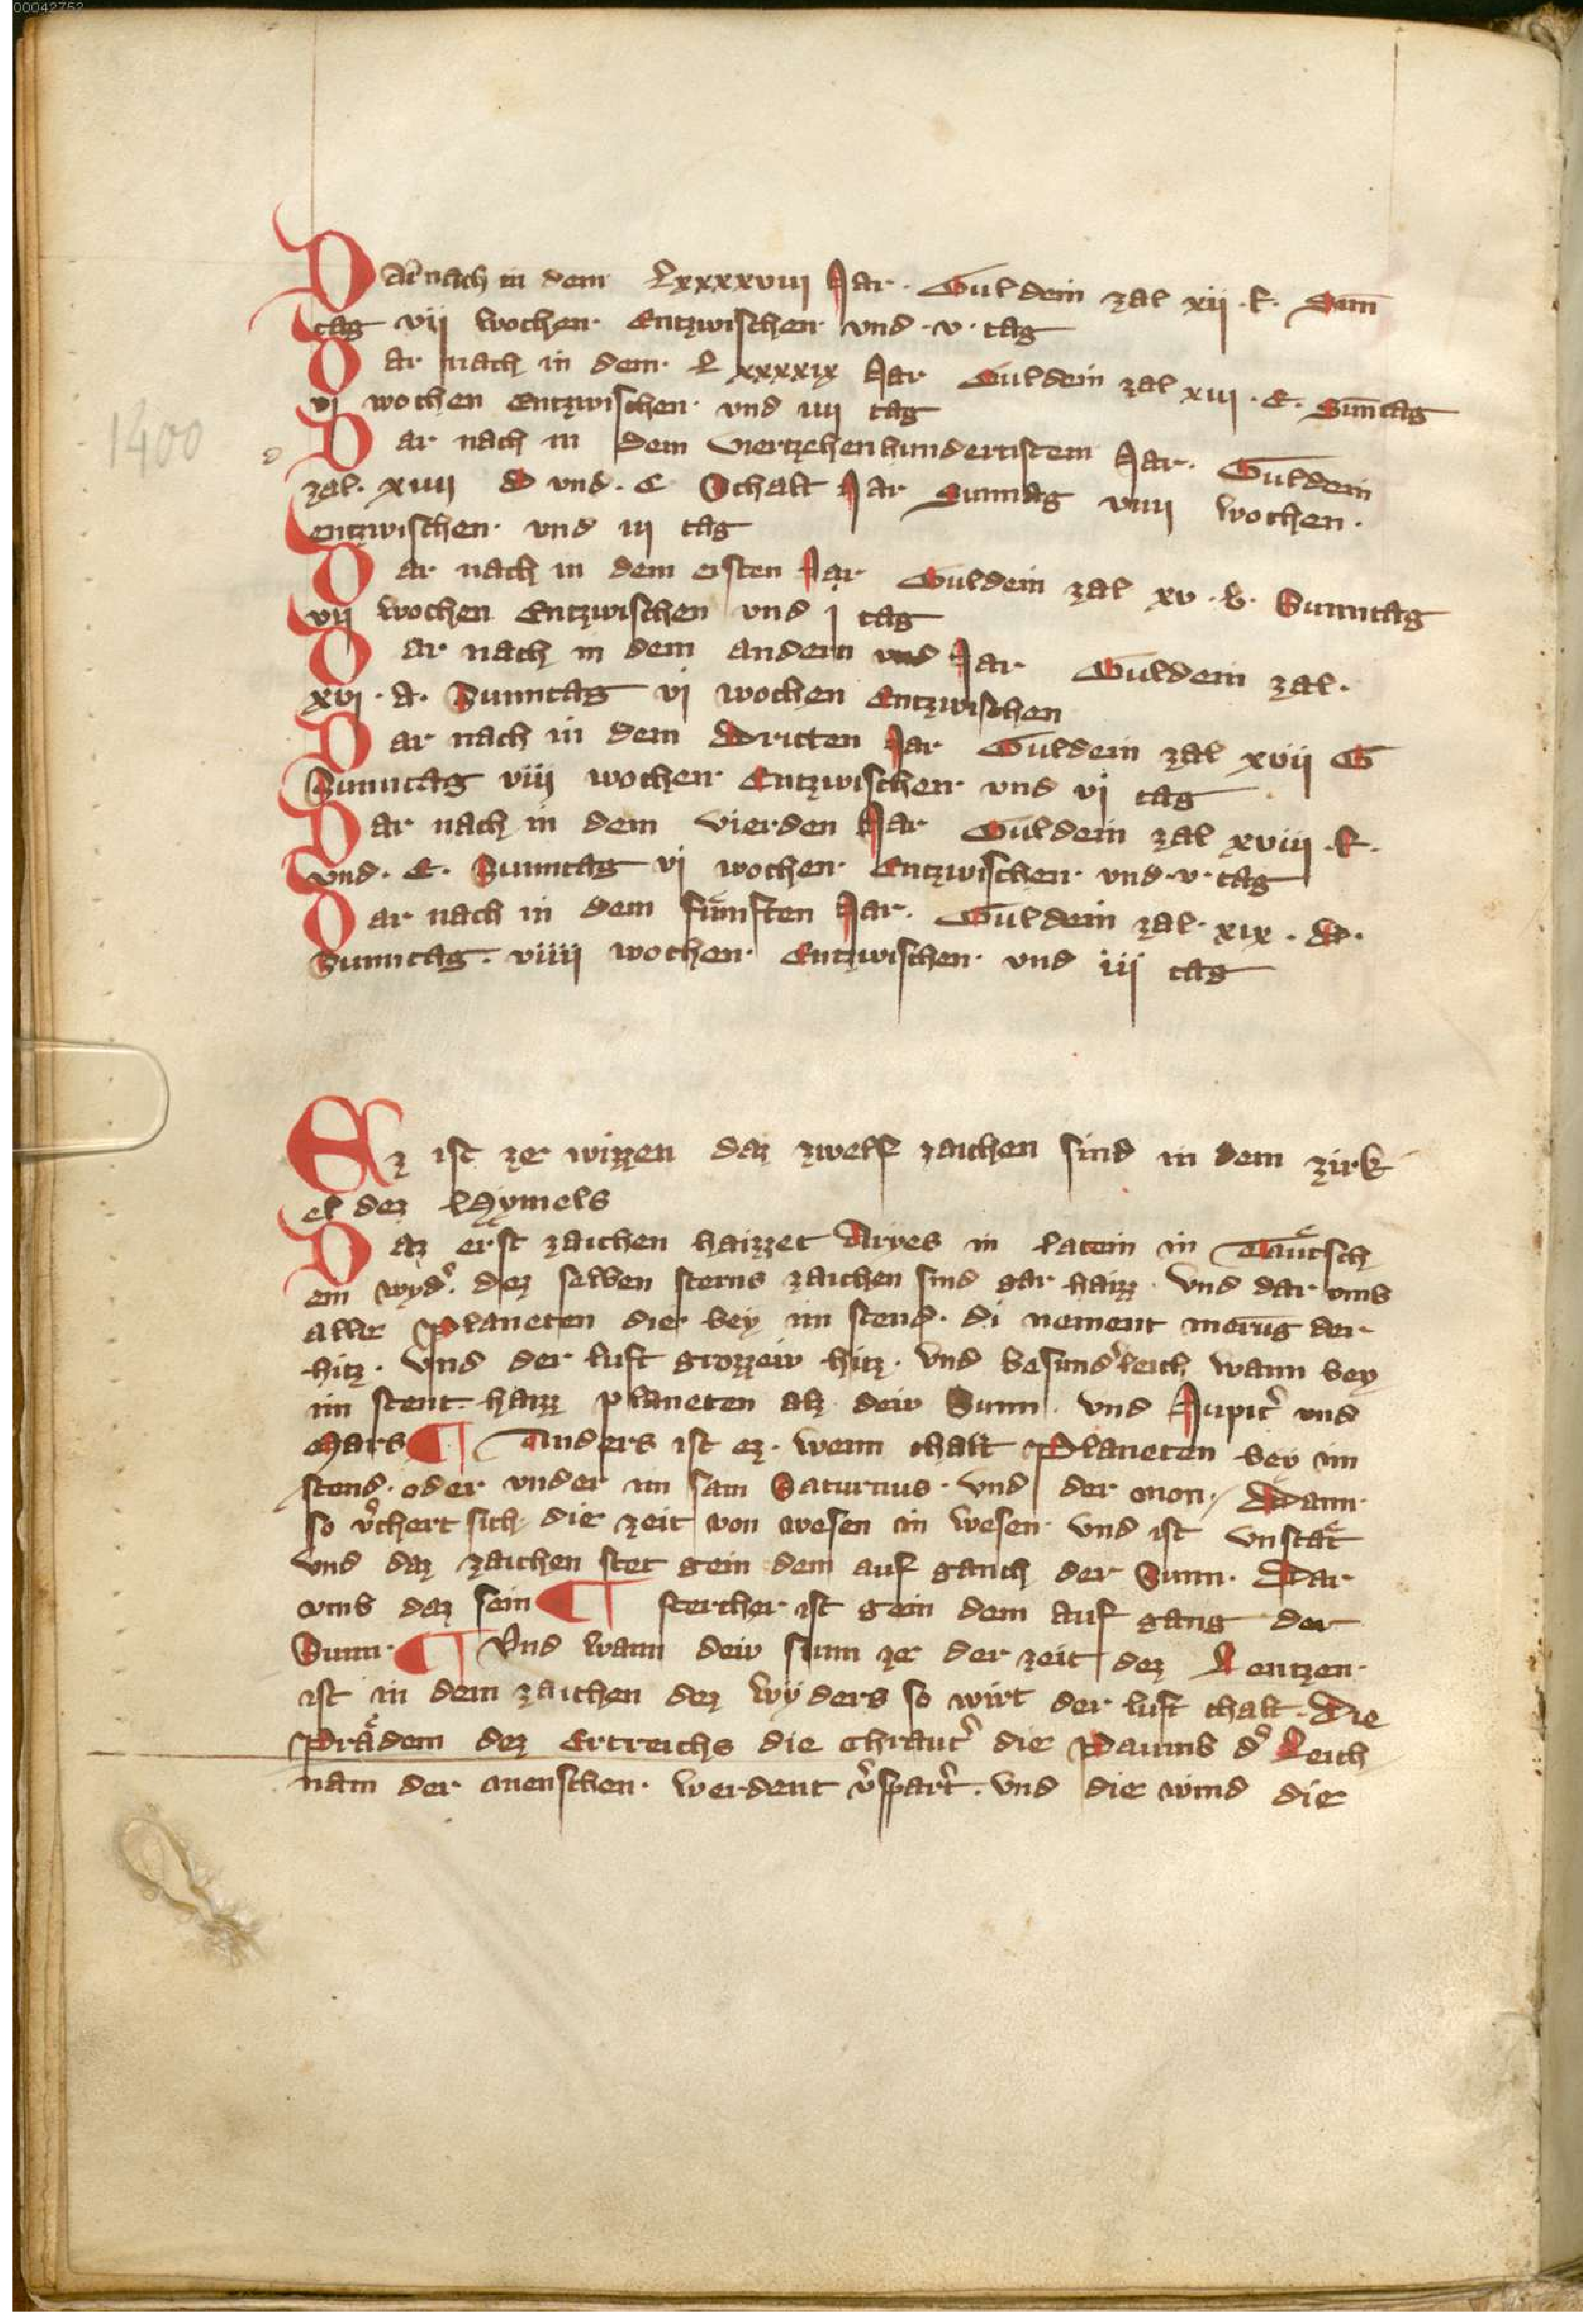 00042752
DAr nach in dem Lxxxxviii Jar. Guldein zal xii .f. Sun̄
tag vii wochen Entzwischen vnd .v. tag
Dar nach in dem L xxxxix Jar Guldein zal xiii .E. Sun̄tag
vi wochen Entzwischen vnd iiii tag
1400
d
Dar nach in dem viertzehenhundertistem Jar. Guldein
zal. xiiii D vnd. C Schalt Jar Sunntag viiii wochen.
entzwischen vnd iii tag
Dar nach in dem ersten Jar Guldein zal xv .b. Sunntag
vii wochen Entzwischen vnd j tag
Dar nach in dem andern vnd Jar Guldein zal.
xvi .A. Sunntag vi wochen Entzwischen
Dar nach in dem Dritten Jar Guldein zal xvii G
Sunntag viii wochen Entzwischen vnd vi tag
Dar nach in dem vierden Jar Guldein zal xviii .f.
vnd. E. Sunntag vi wochen Entzwischen vnd .v. tag
Dar nach in dem fu̇nften Jar. Guldein zal. xix .D.
Sunntag. viiii wochen Entzwischen vnd iii tag
Ez ist ze wizzen daz zwelf zaichen sind in dem zirk
el dez Hymels
Daz erst zaichen haizzet Aryes in latein in Taͤutsch
ein wyd᷑. dez selben sterns zaichen sind gar haizz. vnd dar vmb
aller Planeten die bey im stend. di nement merūg der
hitz. vnd der luft grozzeiv hitz. vnd besund᷑leich wann bey
im stent haizz planeten alz deiv Sunn. vnd Jupit᷑ vnd
Mars ¶ Anders ist ez. wenn chalt Planeten bey im
stend. oder vnder im sam Saturnus. vnd der mon / Dann
so v᷑chert sich die zeit von wesen in wesen vnd ist vnstaͤt
vnd daz zaichen stet gein dem auf ganch der Sunn. Dar
vmb daz sein ¶ stercher ist gein dem auf gang der
Sunn. ¶ Vnd wann deiv sunn ze der zeit dez Lentzen
ist in dem zaichen dez wyders so wirt der luft chalt. Die
Praͤdem dez Ertreichs die Chraut᷑ die Paumb d᷑ Leich
nam der menschen werdent v᷑spart᷑. vnd die wind die